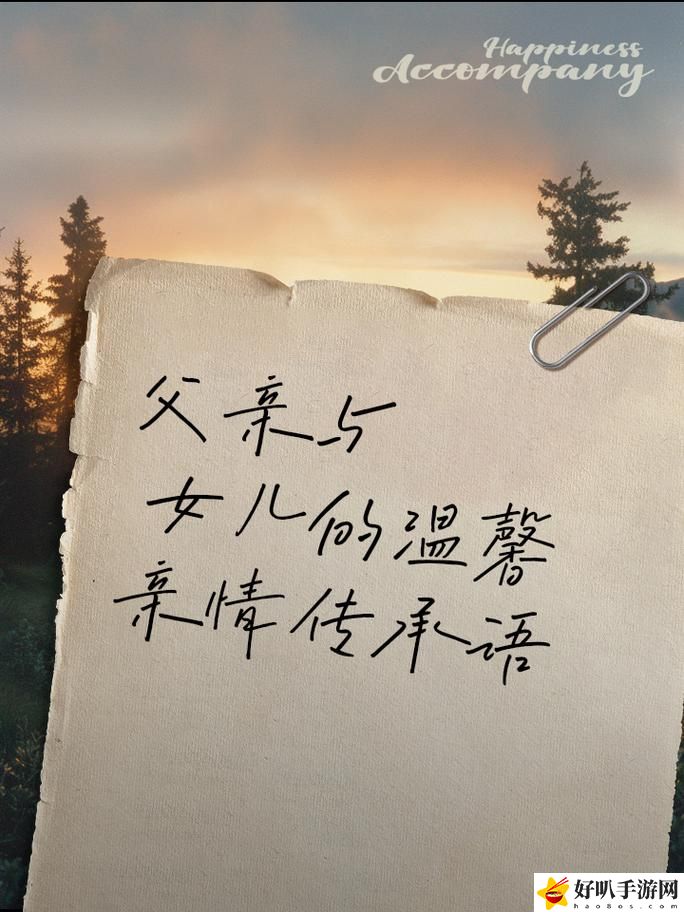 Happiness
Accompany
父亲与
女儿的温馨
亲情传承语
好叭手游网
hao8os.com